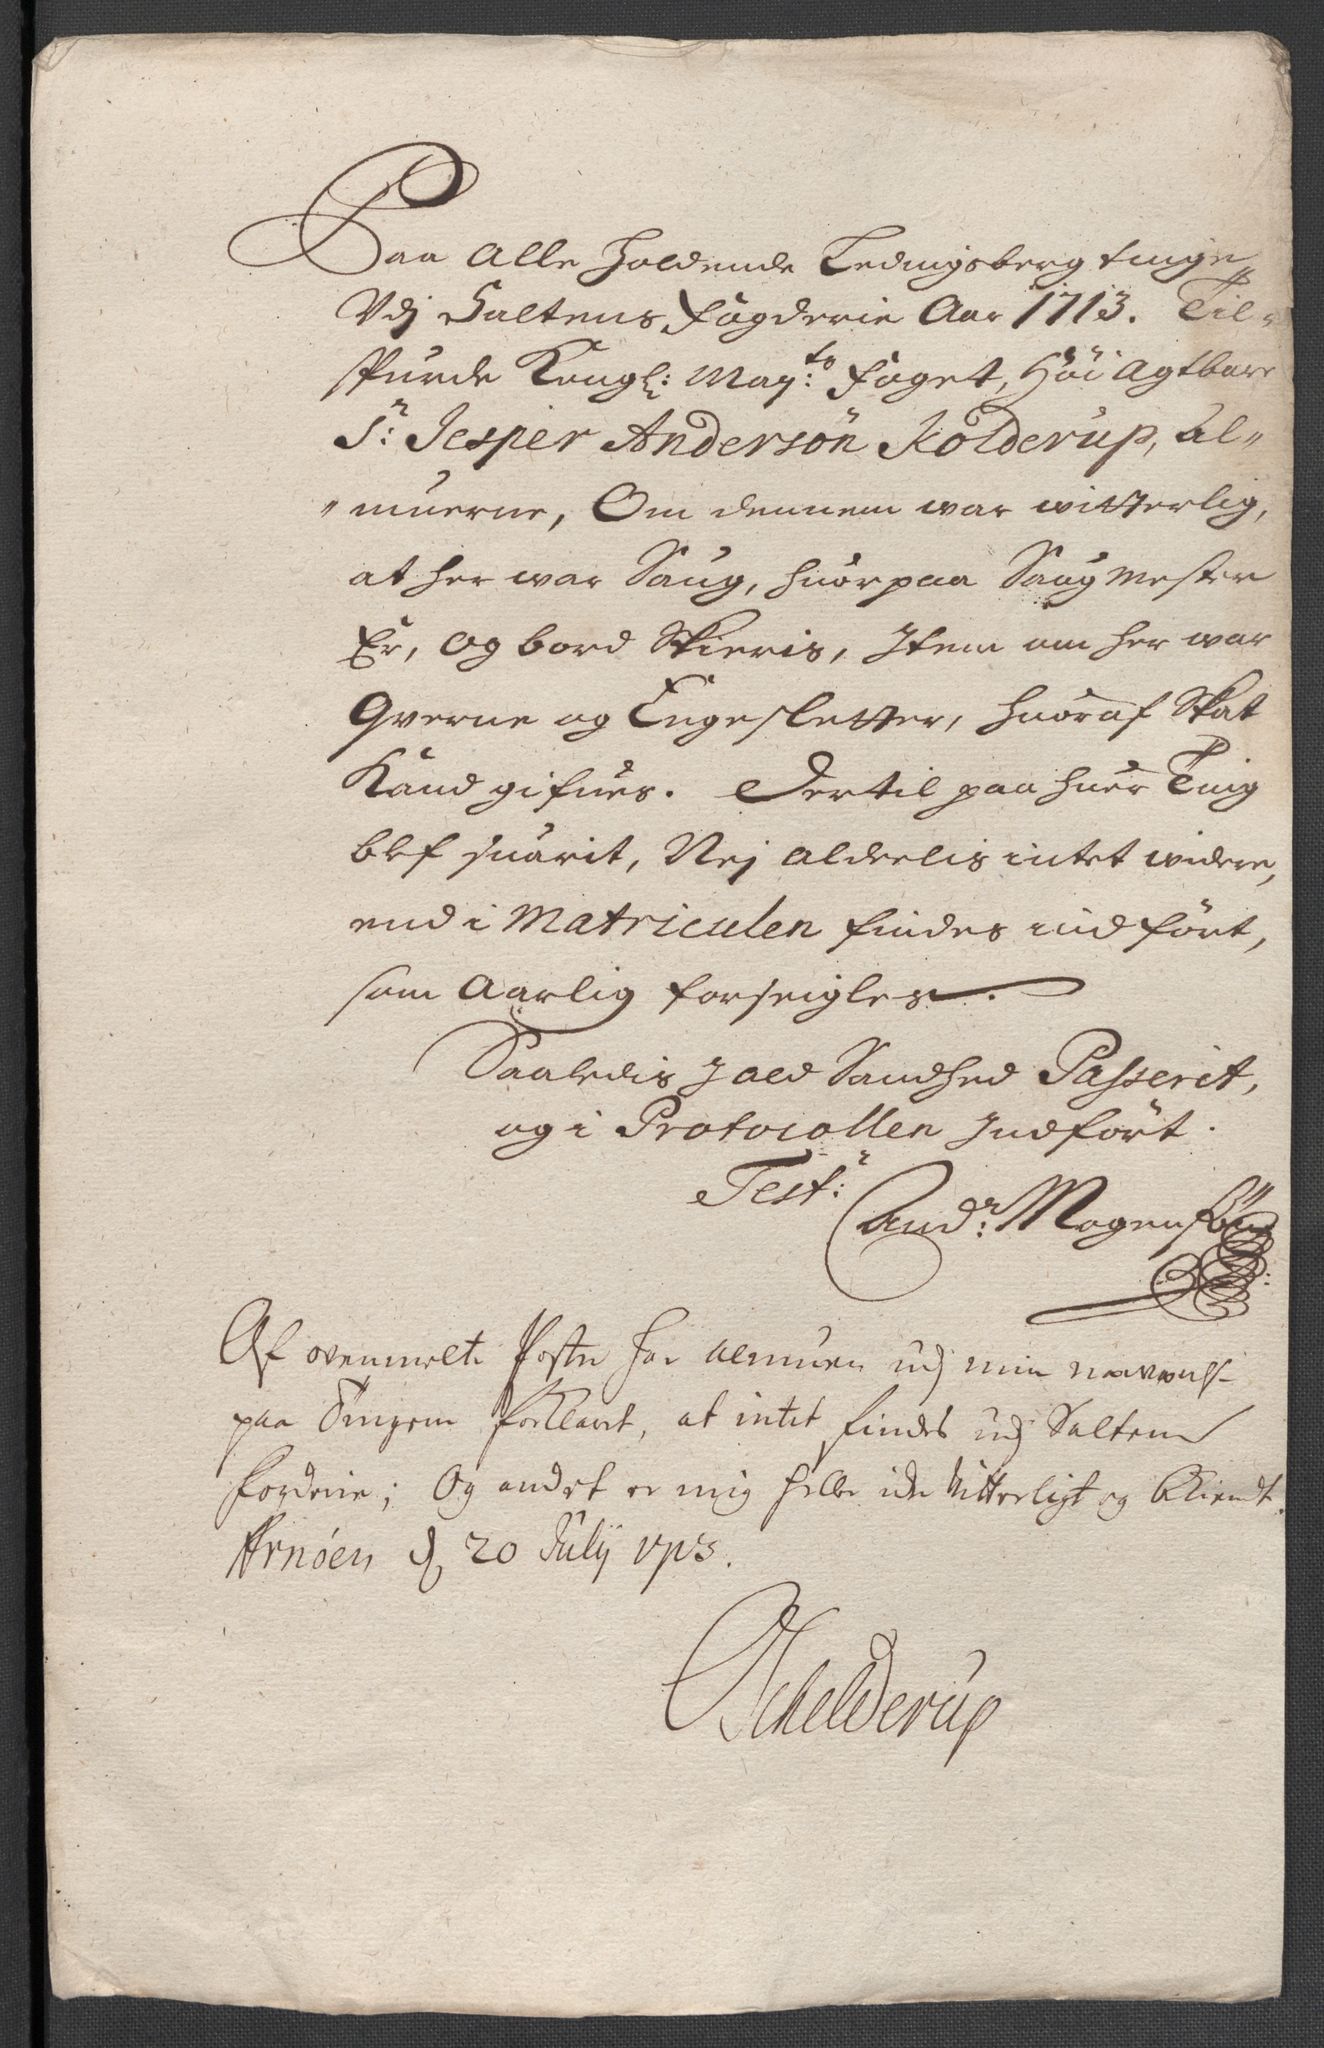 Paa Alle holdende Ledingsberg tinge
Vdj Saltens fögderie Aar 1713. Til-
spurde Kongl: May:ts foget, Höi Agtbare
Sr: Jesper Andersön Kolderup, Al-
-muerne, Om dennem war witterlig,
at her war Saug, huorpaa Saugmester
Er, og bord Skieris, Item om her war
Qverne og Engesletter, huoraf Skat
Kand gifues. Dertil paa huer Ting
blef suarit, Nej alderlis intet widere,
end i Matriculen findes indfört,
som Aarlig forseigles.
Saaledis J ald Sandhed Passerit,
og i Protocollen Jndfört.
Test:r
And:r Mogensön
Af ovenmelte Poster har Almuen udj min nærværelse
paa Tingene forklaret, at intet findes udj Saltens
fogderie; Og andet er mig heller icke vitterligt og bekiendt.
Arnöen d 20 Julij 1713.
Schelderup